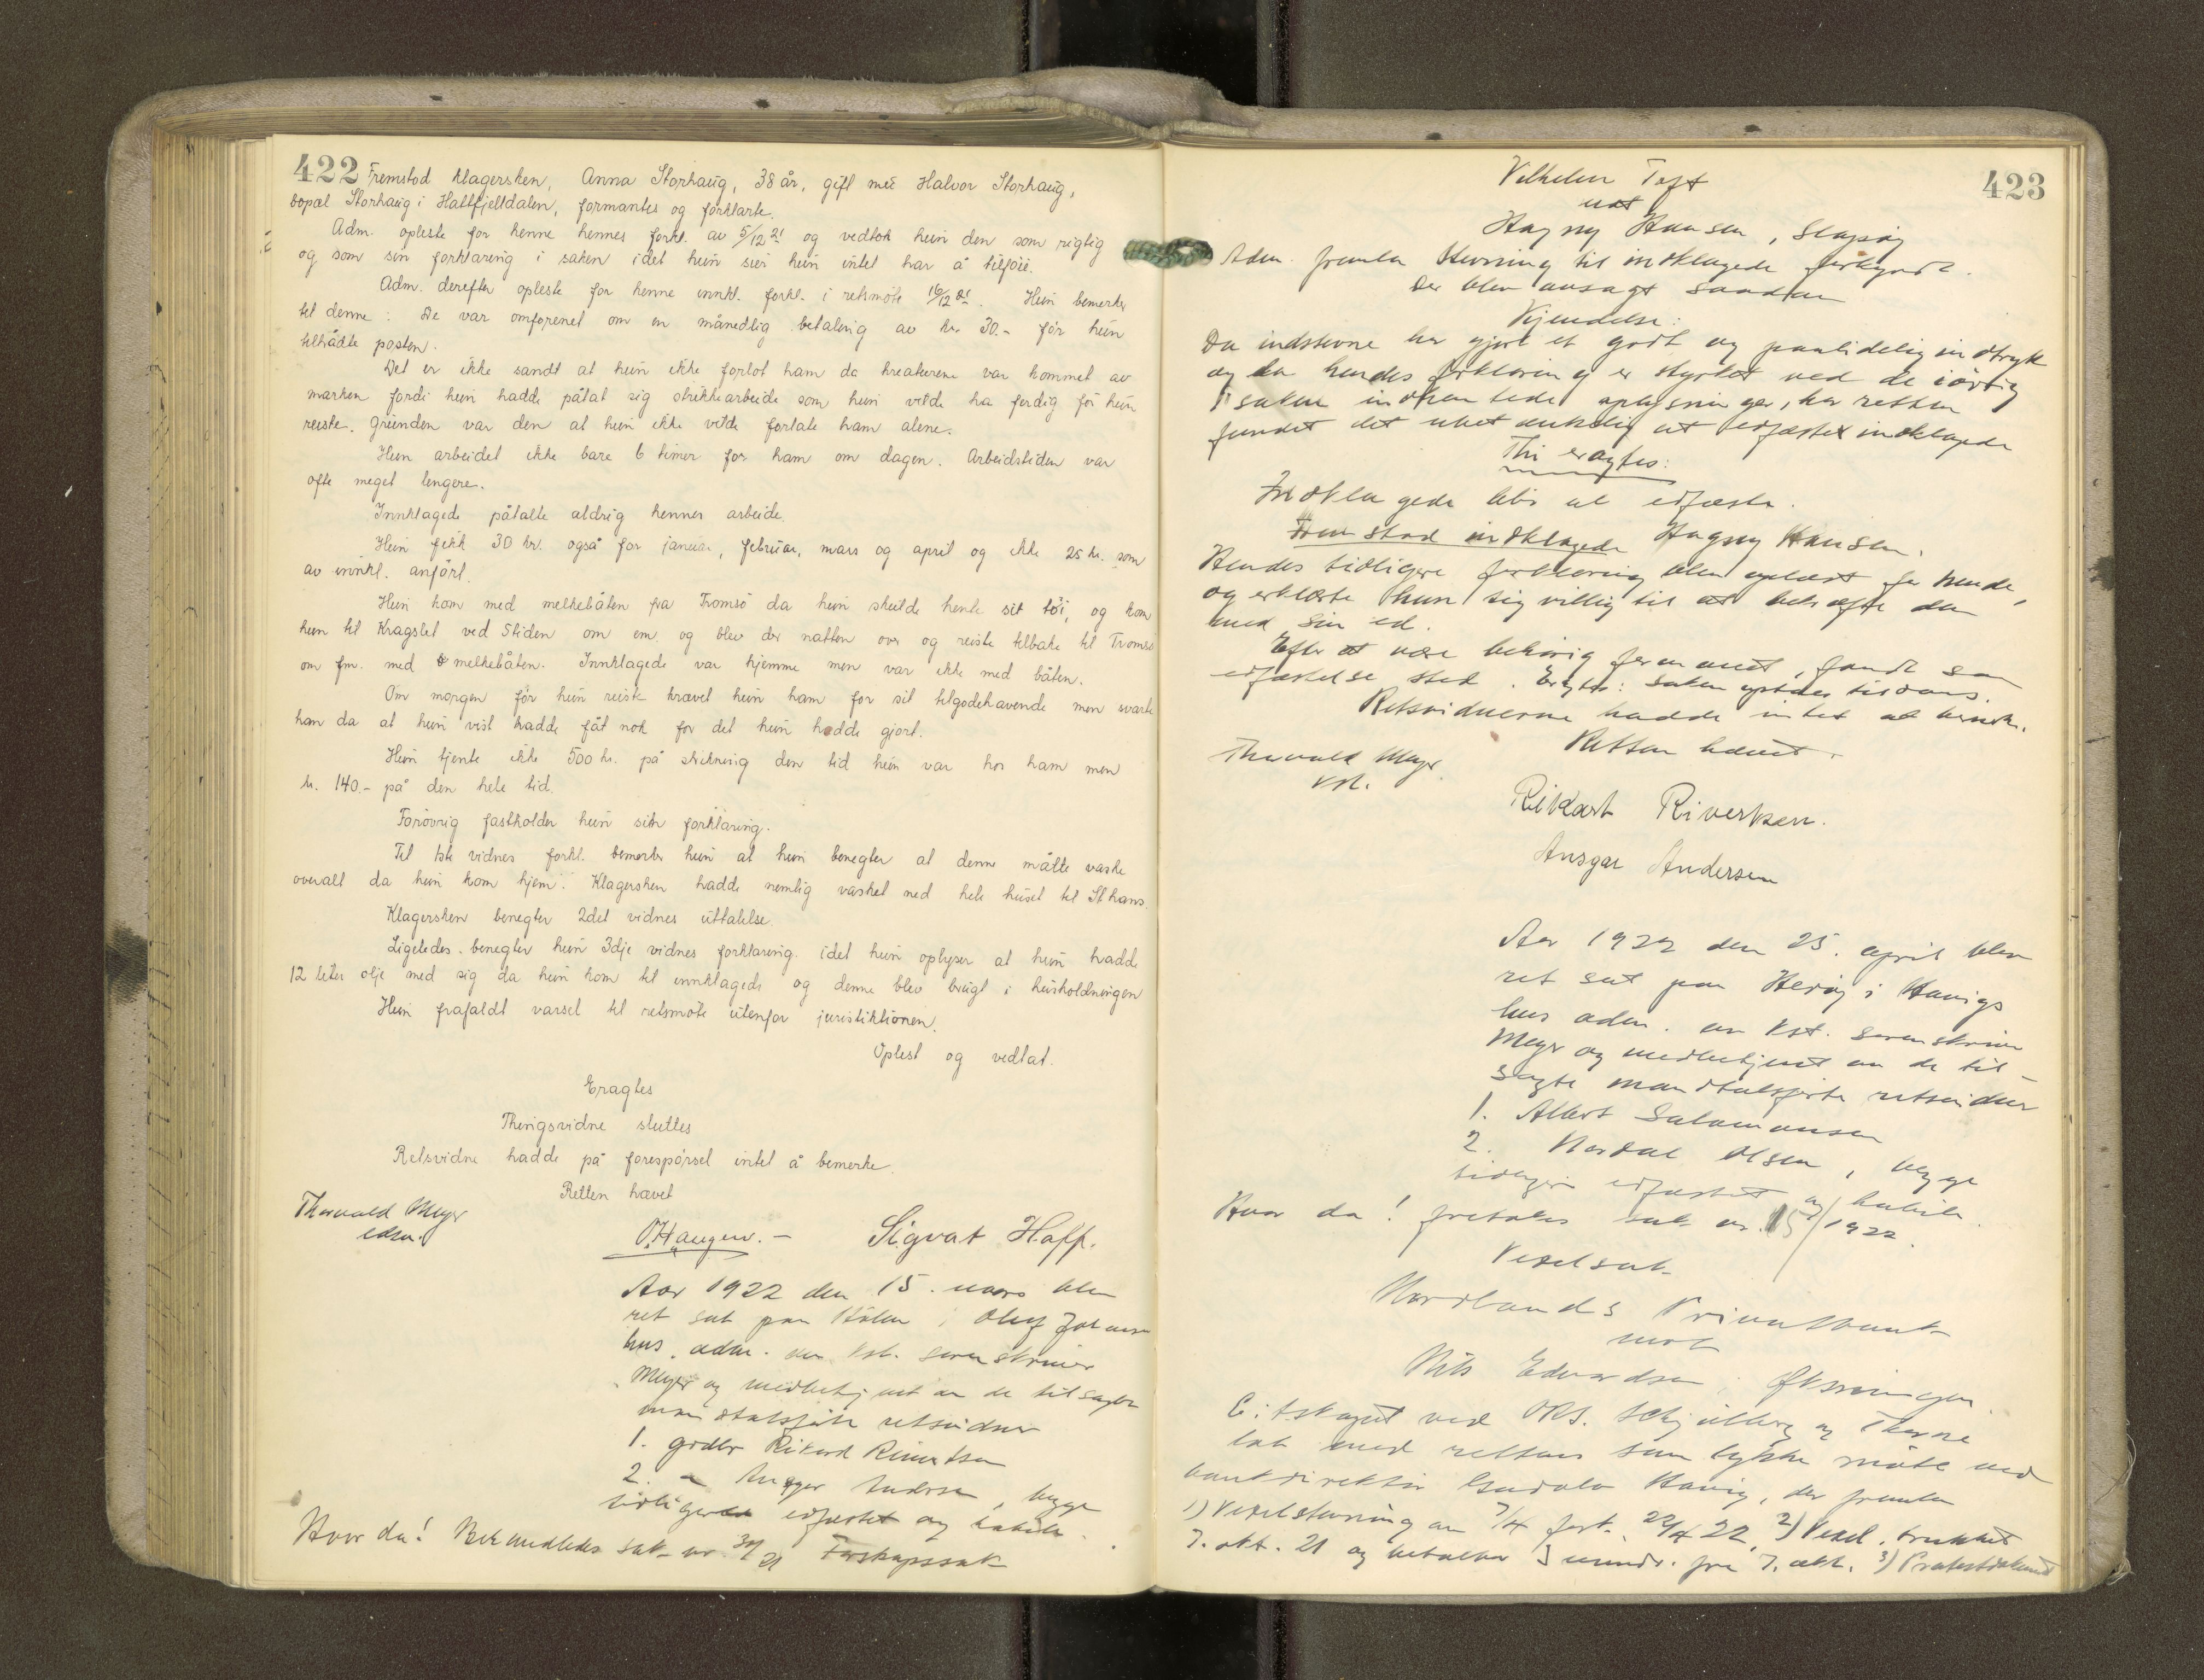 422
Fremstod klagersken, Anna Storhaug, 38 år, gift med Halvor Storhaug,
bopæl Storhaug i Hattfjelldalen, formantes og forklarte.
Adm. opleste for henne hennes forkl. av 5/12 21 og vedtok hun den som rigtig
og som sin forklaring i saken idet hun sier hun intet har å tilföie.
Adm. derefter opleste for henne innkl. forkl. i retsmöte 16/12 21. Hun bemerker
til denne: De var omforenet om en månedlig betaling av kr. 30.- för hun
tiltrådte posten.
Det er ikke sandt at hun ikke forlot ham da kreaturene var kommet av
marken fordi hun hadde påtat sig strikkearbeide som hun vilde ha ferdig för hun
reiste. Grunden var den at hun ikke vilde forlate ham alene.
Hun arbeidet ikke bare 6 timer for ham om dagen. Arbeidstiden var
ofte meget lengere.
Innklagede påtalte aldrig hennes arbeide.
Hun fikk 30 kr. også for januar, februar, mars og april og ikke 25 kr. som
av innkl. anfört.
Hun kom med melkebåten fra Tromsö da hun skulde hente sit töi, og kom
hun til Kragslet ved 5tiden om em. og blev der natten over og reiste tilbake til Tromsö
om fm. med melkebåten. Innklagede var hjemme men var ikke med båten.
Om morgen för hun reiste krævet hun ham for sit tilgodehavende men svarte
han da at hun vist hadde fåt nok for det hun hadde gjort.
Hun tjente ikke 500 kr. på strikning den tid hun var hos ham men
kr. 140.- på den hele tid.
Forövrig fastholder hun sin forklaring.
Til 1ste vidnes forkl. bemerker hun at hun benegter at denne måtte vaske
overalt da hun kom hjem. Klagersken hadde nemlig vasket ned hele huset til St hans.
Klagersken benegter 2det vidnes uttalelse.
Ligeledes benegter hun 3dje vidnes forklaring idet hun oplyser at hun hadde
12 liter olje med sig da hun kom til innklagede og denne blev brugt i husholdningen
Hun frafaldt varsel til retsmöte utenfor jurisdiktionen.
Oplest og vedtat.
Eragtes
Thingsvidne sluttes
Retsvidne hadde på forespörsel intet å bemerke.
Retten hævet
Thorvald Meyer
edsv.
O. Haugen. -
Sigvat Haff.
Aar 1922 den 15. mars blev
ret sat paa i Oluf Johansens
hus, adm. av kst. sorenskriver
Meyer og medbetjent av de tilsagte
mandtalsförte retsvidner
1. grdbr Rikard Rivertsen
2. - Ansgar Andersen, begge
tidligere edfæstet og habile.
Hvor da! Behandledes sak nr. 30/21 Farskapssak
423
Vilhelm Toft
mot
Hagny Hansen, Slapöy
Adm. fremla stevning til indklagede forkyndt.
Der blev avsagt saadan
Kjendelse:
Da indstevnte har gjort et godt og paalidelig indtryk
og da hendes forklaring er styrket ved de iövrig
i saken indhentede oplysninger, har retten
fundet det ubetænkelig at edfæste indklagede
Thi eragtes:
Indklagede blir at edfæste.
Fremstod indklagede Hagny Hansen.
Hendes tidligere forklaring blev oplæst for hende,
og erklærte hun sig villig til at bekræfte den
med sin ed.
Efter at være behörig formanet, fandt saa
edfæstelse sted. Eragtes: Saken optages til doms.
Retsvidnerne hadde intet at bemerke.
Retten hævet.
Thorvald Meyer
kst.
Rikart Rivertsen.
Ansgar Andersen
Aar 1922 den 25. april blev
ret sat paa Heröy i Havigs
hus adm. av kst. sorenskriver
Meyer og medbetjent av de til-
sagte mandtalsförte retsvidner
1. Albert Salamonsen
2. Nordal Olsen, begge
tidligere edfæstet og habile.
Hvor da! foretokes sak nr. 15/1922.
Vexelsak
Nordlands Privatbank
mot
Nils Edvardsen,
Citskapet ved ORS. Schjölberg og
lot med rettens samtykke möte ved
bankdirektör Havig, der fremla
1) Vexelstevning av 7/4 fork. 22/4 22, 2) Vexel, trukket
7. okt. 21 og betalbar 3 mndr. fra 7. okt. 3) Protestdokument